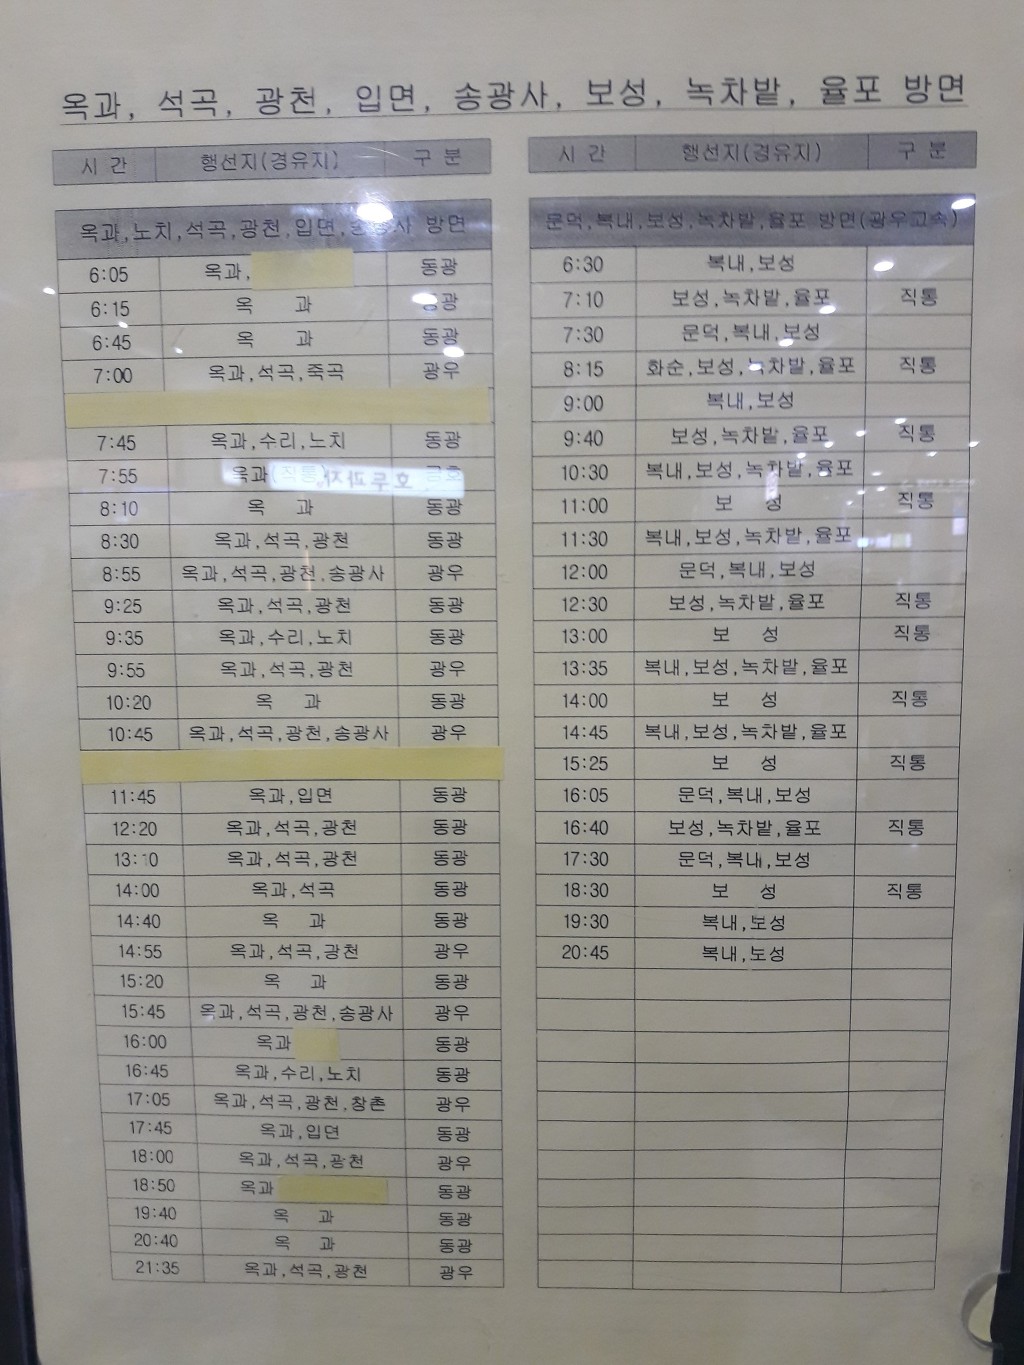 옥과, 석곡, 광천, 입면, 송광사, 보성, 녹차밭, 율포 방면
시 간 행선지(경유지) 구 분
옥과,노치,석곡,광천,입면,송광사 방면
6:05 옥과, 동광
6:15 옥 과 동광
6:45 옥 과 동광
7:00 옥과,석곡,죽곡 광우
7:45 옥과,수리,노치 동광
7:55 옥과(직통) 금호
8:10 옥 과 동광
8:30 옥과,석곡,광천 동광
8:55 옥과,석곡,광천,송광사 광우
9:25 옥과,석곡,광천 동광
9:35 옥과,수리,노치 동광
9:55 옥과,석곡,광천 광우
10:20 옥 과 동광
10:45 옥과,석곡,광천,송광사 광우
11:45 옥과,입면 동광
12:20 옥과,석곡,광천 동광
13:10 옥과,석곡,광천 동광
14:00 옥과,석곡 동광
14:40 옥 과 동광
14:55 옥과,석곡,광천 광우
15:20 옥 과 동광
15:45 옥과,석곡,광천,송광사 광우
16:00 옥과 동광
16:45 옥과,수리,노치 동광
17:05 옥과,석곡,광천,창촌 광우
17:45 옥과,입면 동광
18:00 옥과,석곡,광천 광우
18:50 옥과 동광
19:40 옥 과 동광
20:40 옥 과 동광
21:35 옥과,석곡,광천 광우
시 간 행선지(경유지) 구 분
문덕,복내,보성,녹차밭,율포 방면(광우고속)
6:30 복내,보성
7:10 보성,녹차밭,율포 직통
7:30 문덕,복내,보성
8:15 화순,보성,녹차밭,율포 직통
9:00 복내,보성
9:40 보성,녹차밭,율포 직통
10:30 복내,보성,녹차밭,율포
11:00 보 성 직통
11:30 복내,보성,녹차밭,율포
12:00 문덕,복내,보성
12:30 보성,녹차밭,율포 직통
13:00 보 성 직통
13:35 복내,보성,녹차밭,율포
14:00 보 성 직통
14:45 복내,보성,녹차밭,율포
15:25 보 성 직통
16:05 문덕,복내,보성
16:40 보성,녹차밭,율포 직통
17:30 문덕,복내,보성
18:30 보 성 직통
19:30 복내,보성
20:45 복내,보성